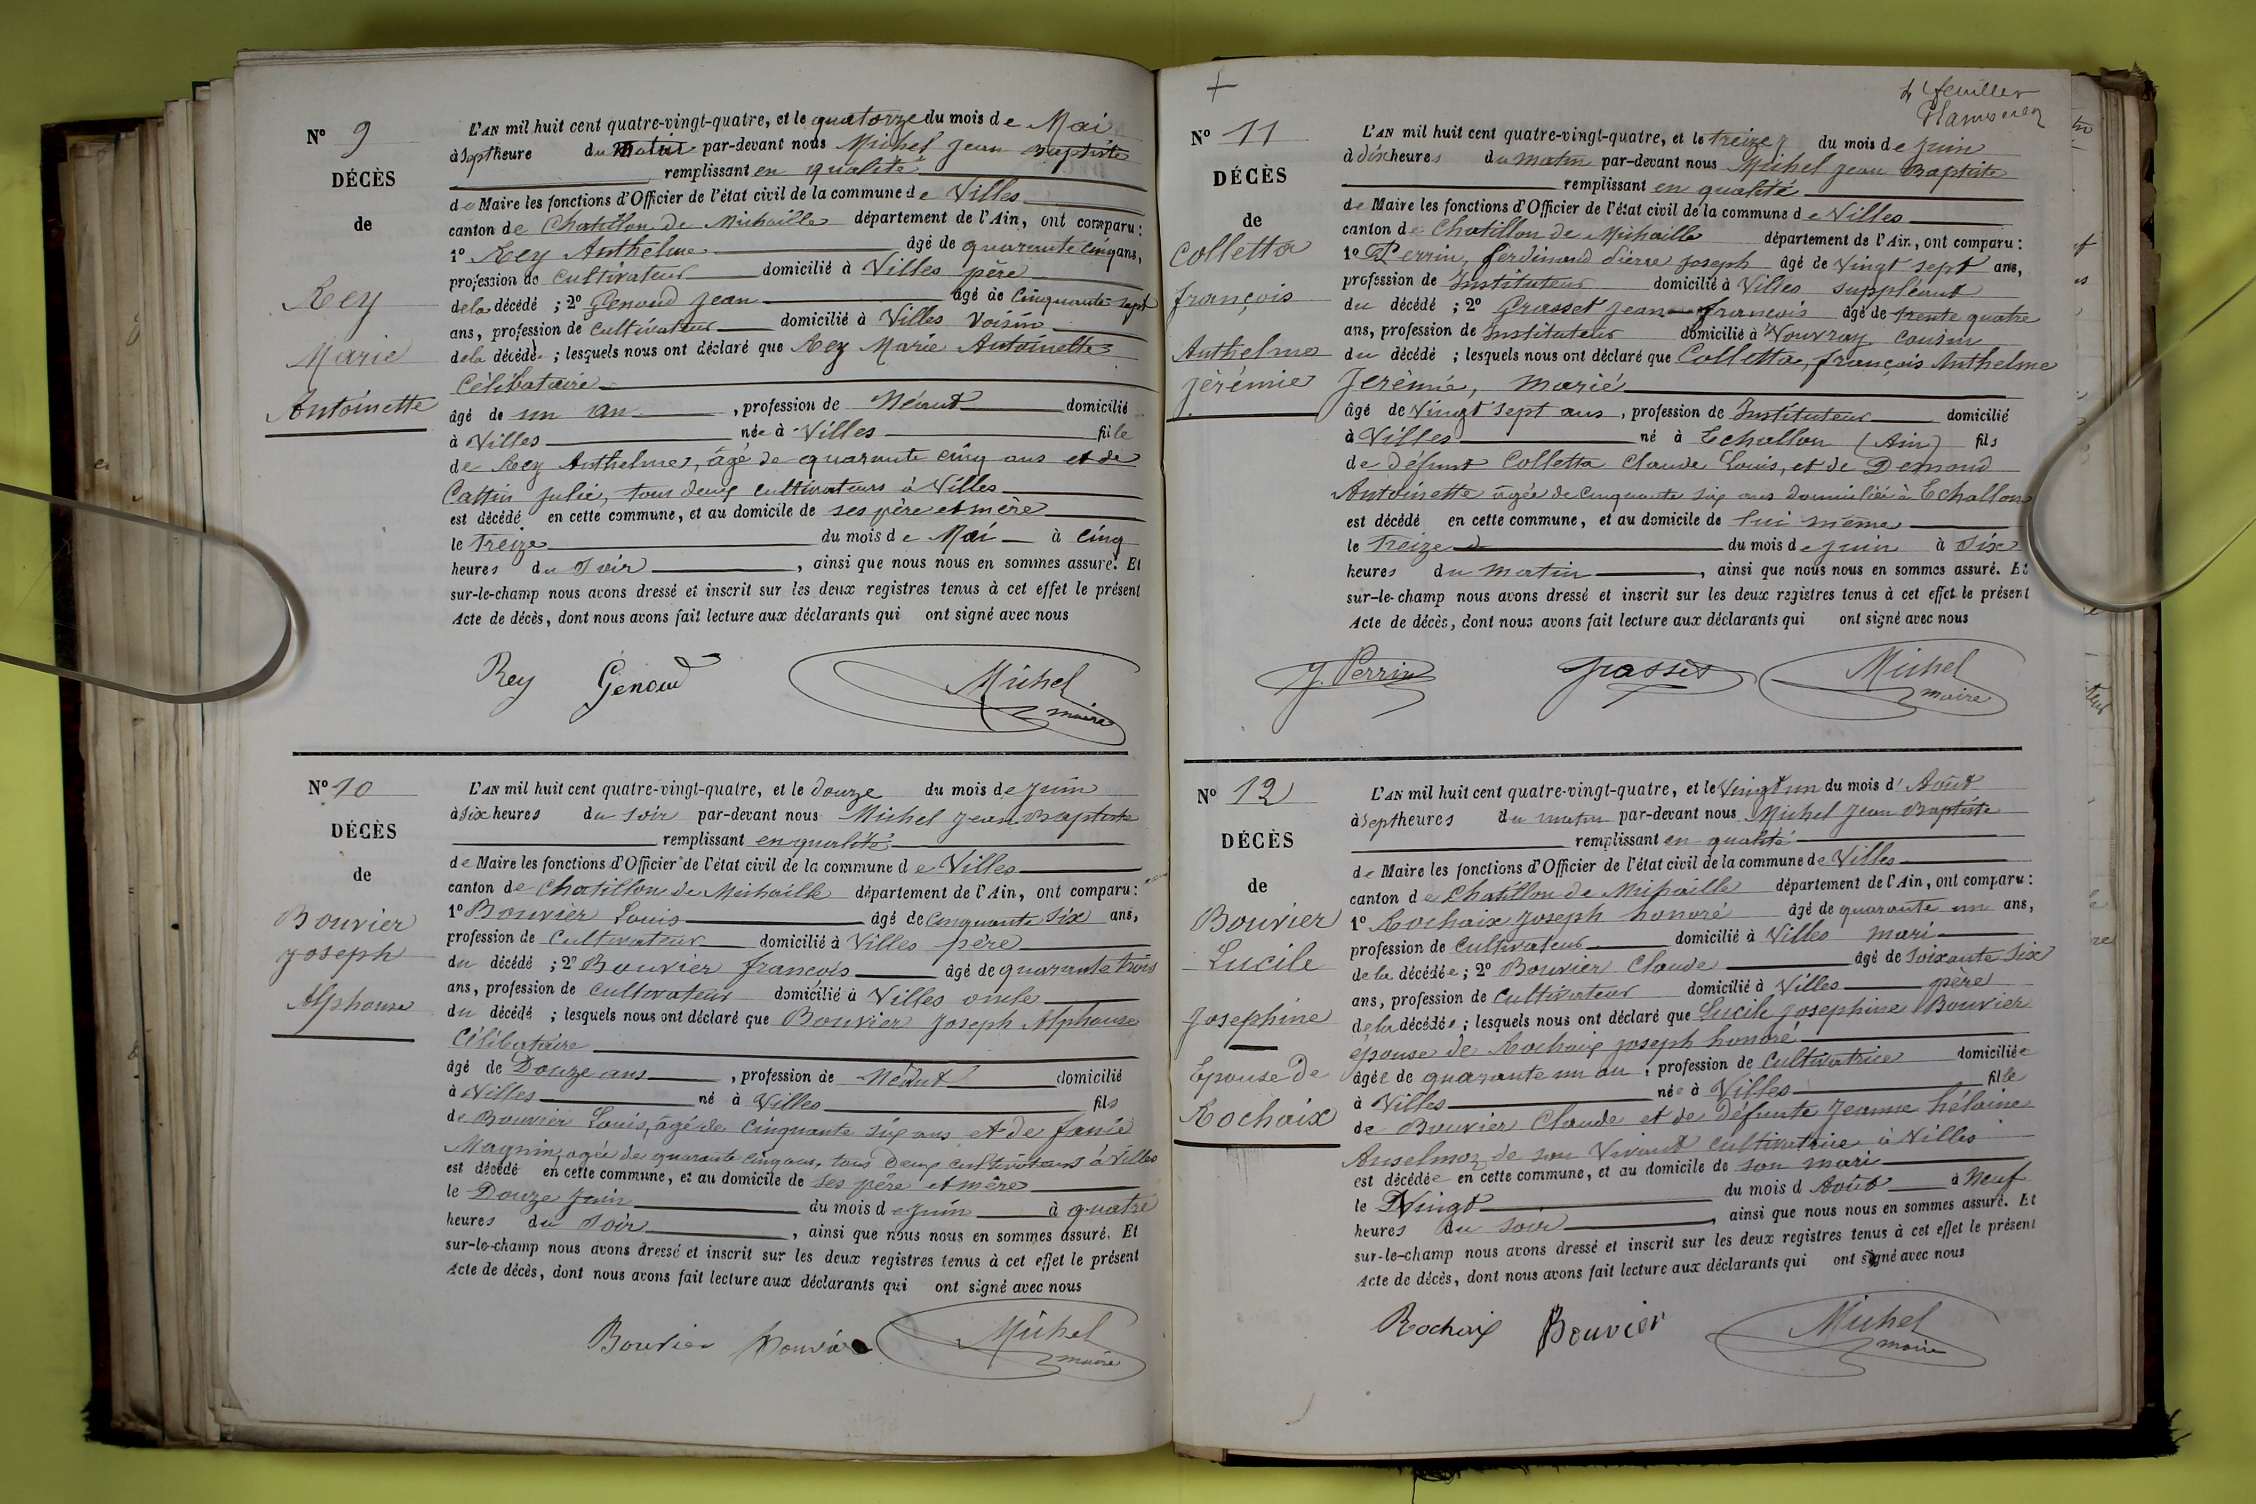 Nº 9
DÉCÈS
de
Rey
Marie
Antoinette
L'AN mil huit cent quatre-vingt-quatre, et le quatorze du mois de Mai
à Sept heure du matin par-devant nous Michel Jean Baptiste
remplissant en qualité
de Maire les fonctions d'Officier de l'état civil de la commune de Villes
canton de Chatillon de Michaille département de l'Ain, ont comparu :
1º Rey Anthelme âgé de quarante cinq ans,
profession de cultivateur domicilié à Villes père
de la décédé ; 2º Genoud Jean âgé de cinquante-sept
ans, profession de cultivateur domicilié à Villes Voisin
de la décédée ; lesquels nous ont déclaré que Rey Marie Antoinette
Célibataire
âgé de un an , profession de Néant domicilié
à Villes née à Villes fille
de Rey Anthelme, âgé de quarante cinq ans et de
Cattin Julie, tous deux cultivateurs à Villes
est décédé en cette commune, et au domicile de ses père et mère
le treize du mois de Mai à cinq
heures du Soir , ainsi que nous nous en sommes assuré. Et
sur-le-champ nous avons dressé et inscrit sur les deux registres tenus à cet effet le présent
Acte de décès, dont nous avons fait lecture aux déclarants qui ont signé avec nous
Rey Genoud Michel
maire
Nº 10
DÉCÈS
de
Bouvier
Joseph
Alphonse
L'AN mil huit cent quatre-vingt-quatre, et le douze du mois de Juin
à Six heures du soir par-devant nous Michel Jean Baptiste
remplissant en qualité
de Maire les fonctions d'Officier de l'état civil de la commune de Villes
canton de Chatillon de Michaille département de l'Ain, ont comparu :
1º Bouvier Louis âgé de cinquante Six ans,
profession de Cultivateur domicilié à Villes père
du décédé ; 2º Bouvier françois âgé de quarante trois
ans, profession de cultivateur domicilié à Villes oncle
du décédé ; lesquels nous ont déclaré que Bouvier Joseph Alphonse
Célibataire
âgé de Douze ans , profession de Néant domicilié
à Villes né à Villes fils
de Bouvier Louis, âgé de cinquante six ans et de fanie
Magnin, agée de quarante cinq ans, tous deux cultivateurs à Villes
est décédé en cette commune, et au domicile de ses père et mère
le Douze Juin du mois de Juin à quatre
heures du Soir , ainsi que nous nous en sommes assuré. Et
sur-le-champ nous avons dressé et inscrit sur les deux registres tenus à cet effet le présent
Acte de décès, dont nous avons fait lecture aux déclarants qui ont signé avec nous
Bouvier Bouvier Michel
maire
Nº 11
DÉCÈS
de
Colletta
françois
Anthelme
Jérémie
L'AN mil huit cent quatre-vingt-quatre, et le treize du mois de Juin
à dix heures du matin par-devant nous Michel Jean Baptiste
remplissant en qualité
de Maire les fonctions d'Officier de l'état civil de la commune de Villes
canton de Chatillon de Michaille département de l'Ain, ont comparu :
1º Perrin, ferdinand Pierre Joseph âgé de Vingt sept ans,
profession de Instituteur domicilié à Villes suppléant
du décédé ; 2º Grasset Jean françois âgé de trente quatre
ans, profession de Instituteur domicilié à Vouvray cousin
du décédé ; lesquels nous ont déclaré que Colletta, françois Anthelme
Jérémie, Marié
âgé de Vingt sept ans , profession de Instituteur domicilié
à Villes né à Echallon (Ain) fils
de défunt Colletta Claude Louis, et de Demond
Antoinette âgée de cinquante six ans domiciliée à Echallon
est décédé en cette commune, et au domicile de lui même
le treize du mois de Juin à Six
heures du Matin , ainsi que nous nous en sommes assuré. Et
sur-le-champ nous avons dressé et inscrit sur les deux registres tenus à cet effet le présent
Acte de décès, dont nous avons fait lecture aux déclarants qui ont signé avec nous
J. Perrin Grasset Michel
maire
Nº 12
DÉCÈS
de
Bouvier
Lucile
Josephine
Epouse de
Rochaix
L'AN mil huit cent quatre-vingt-quatre, et le Vingt un du mois d'Août
à Sept heures du matin par-devant nous Michel Jean Baptiste
remplissant en qualité
de Maire les fonctions d'Officier de l'état civil de la commune de Villes
canton de Chatillon de Michaille département de l'Ain, ont comparu :
1º Rochaix Joseph honoré âgé de quarante un ans,
profession de Cultivateur domicilié à Villes mari
de la décédée ; 2º Bouvier Claude âgé de Soixante Six
ans, profession de Cultivateur domicilié à Villes père
de la décédée ; lesquels nous ont déclaré que Lucile Josephine Bouvier
épouse de Rochaix Joseph honoré
âgée de quarante un an , profession de Cultivatrice domiciliée
à Villes née à Villes fille
de Bouvier Claude et de Défunte Jeanne hélaine
Anselmoz de son Vivant cultivatrice à Villes
est décédée en cette commune, et au domicile de son mari
le Vingt du mois d Août à Neuf
heures du soir , ainsi que nous nous en sommes assuré. Et
sur-le-champ nous avons dressé et inscrit sur les deux registres tenus à cet effet le présent
Acte de décès, dont nous avons fait lecture aux déclarants qui ont signé avec nous
Rochaix Bouvier Michel
maire